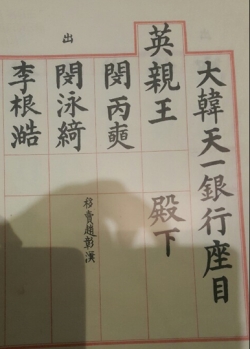 大韓天一銀行座目
英親王 殿下
閔丙奭
閔泳綺
移賣趙彰漢
李根澔
出